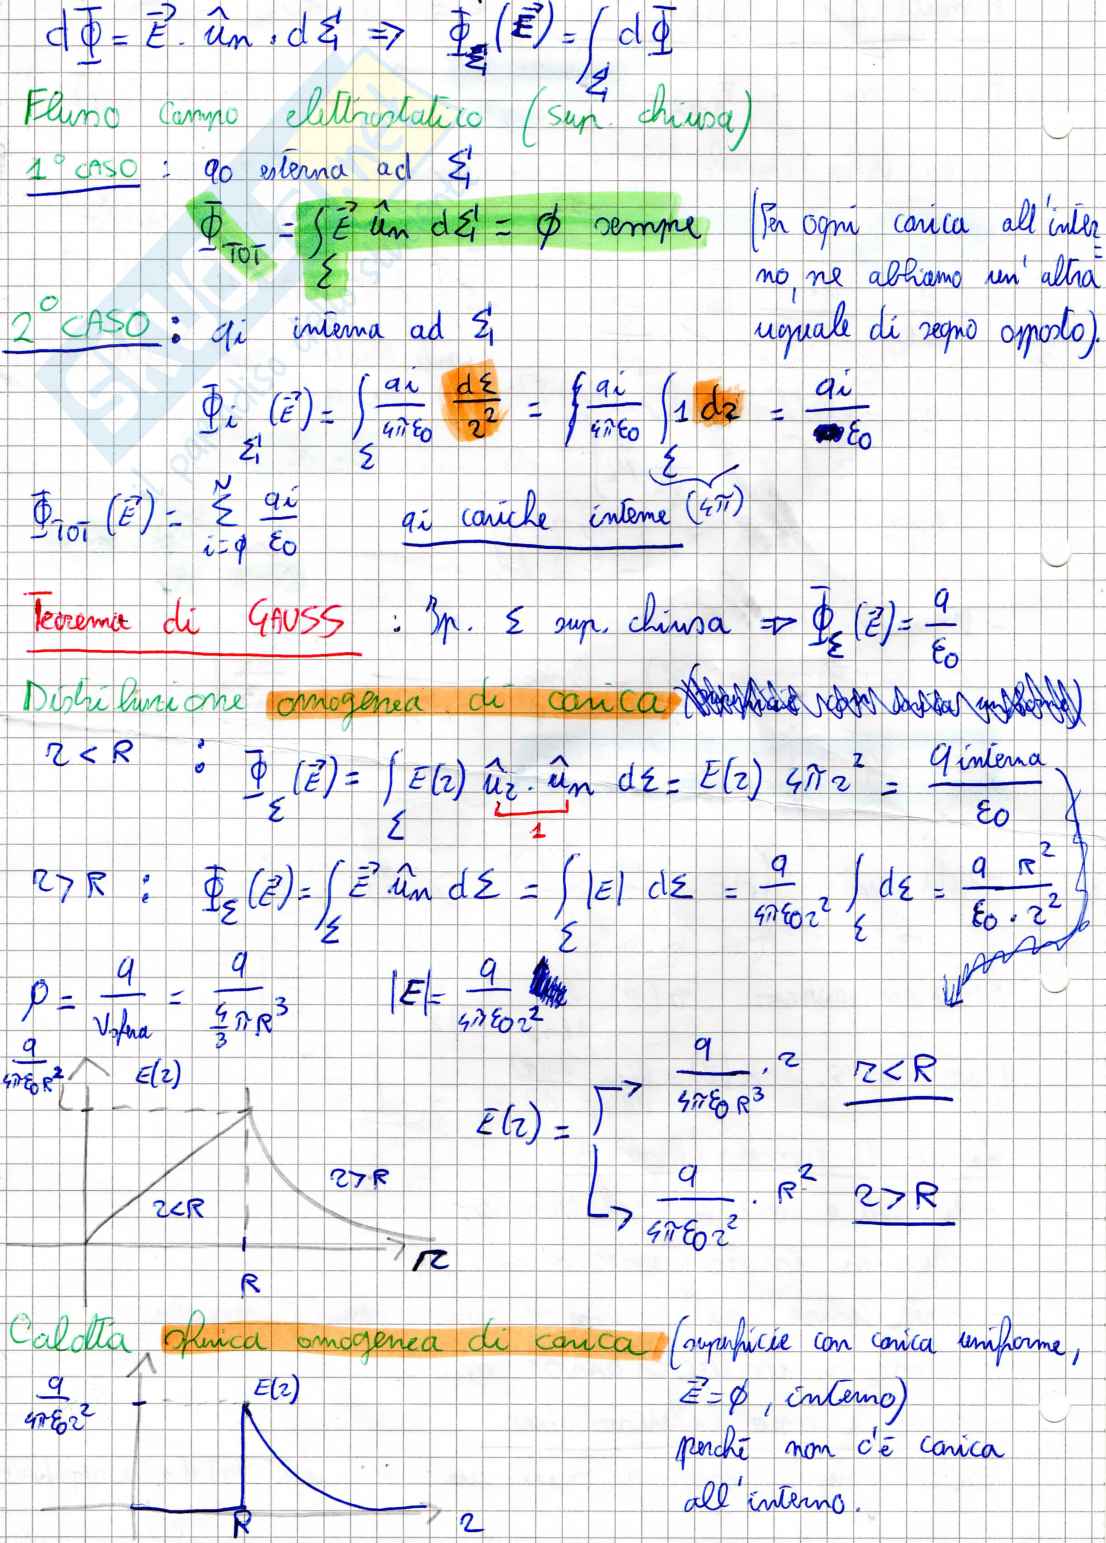 dΦ = E⃗ · ûn · dΣ ⇒ Φ_Σ (E⃗) = ∫_Σ dΦ
Flusso campo elettrostatico (sup. chiusa)
1° CASO : q0 esterna ad Σ
Φ_TOT = ∫_Σ E⃗ ûn dΣ = ϕ sempre (Per ogni carica all'inter=
no, ne abbiamo un'altra
uguale di segno opposto).
2° CASO : qi interna ad Σ
Φi_Σ (E⃗) = ∫_Σ qi/4πε0 dΣ/r² = ∫ qi/4πε0 ∫_Σ 1 dr = qi/ε0
(4π)
Φ_TOT (E⃗) = Σ_{i=ϕ}^{N} qi/ε0 qi cariche interne
Teorema di GAUSS : Ip. Σ sup. chiusa ⇒ Φ_Σ (E⃗) = q/ε0
Distribuzione omogenea di carica
r < R : Φ_Σ (E⃗) = ∫_Σ E(r) ûr · ûn dΣ = E(r) 4πr² = q interna/ε0
1
r > R : Φ_Σ (E⃗) = ∫_Σ E⃗ ûn dΣ = ∫_Σ |E| dΣ = q/4πε0r² ∫_Σ dΣ = q R²/ε0 · r²
ρ = q/Vsfera = q/(4/3 πR³) |E| = q/4πε0r²
q/4πε0R² E(r)
E(r) = → q/4πε0R³ · r r < R
→ q/4πε0r² · R² r > R
r<R r>R
R r
Calotta sferica omogenea di carica (superficie con carica uniforme,
E⃗ = ϕ, interno)
perchè non c'è carica
all'interno.
q/4πε0r² E(r)
R r